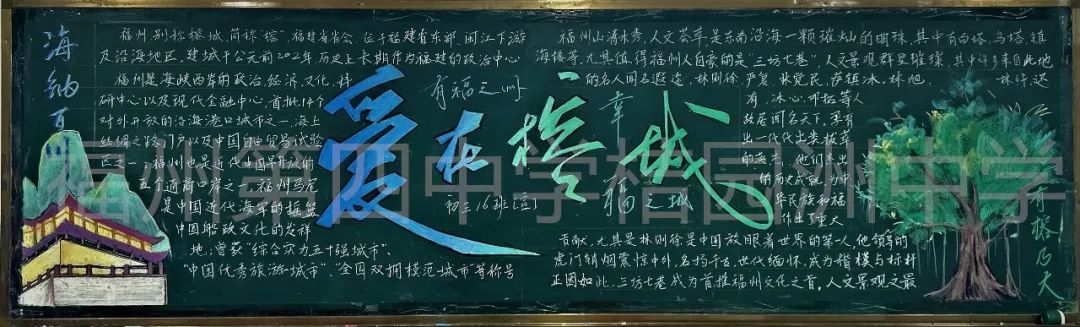 海纳百
福州,别称榕城,简称“榕”,福建省省会,位于福建省东部、闽江下游
及沿海地区,建城于公元前202年,历史上长期作为福建的政治中心
福州是海峡西岸的政治、经济、文化、科
研中心以及现代金融中心,首批14个
对外开放的沿海港口城市之一,海上
丝绸之路门户以及中国自由贸易试验
区之一;福州也是近代中国早开放的
五个通商口岸之一,福州马尾
是中国近代海军的摇篮
中国船政文化的发祥
地,曾获“综合实力五十强城市”、
“中国优秀旅游城市”、“全国双拥模范城市”等称号
有福之州
爱在榕城
幸福之城
初三16班[宣]
福州山清水秀,人文荟萃,是东南沿海一颗璀璨的明珠,其中有白塔、乌塔、镇
海楼等,尤其值得福州人自豪的是“三坊七巷”,人文景观群星璀璨,其中许多来自此地
的名人闻名遐迩,林则徐、严复、林觉民、萨镇冰、林旭、
有,冰心、邓拓等人
故居闻名天下,孕育
出一代代出类拔萃
的英杰,他们杰出
的历史成就,为中
华民族和福
作出了重大
贡献,尤其是林则徐是中国放眼看世界的第一人,他领导的
虎门销烟震惊中外,名扬千古,世代缅怀,成为楷模与标杆
正因如此,三坊七巷成为首推福州文化之首,人文景观之最
有榕乃大
福州第四中学桔园洲中学